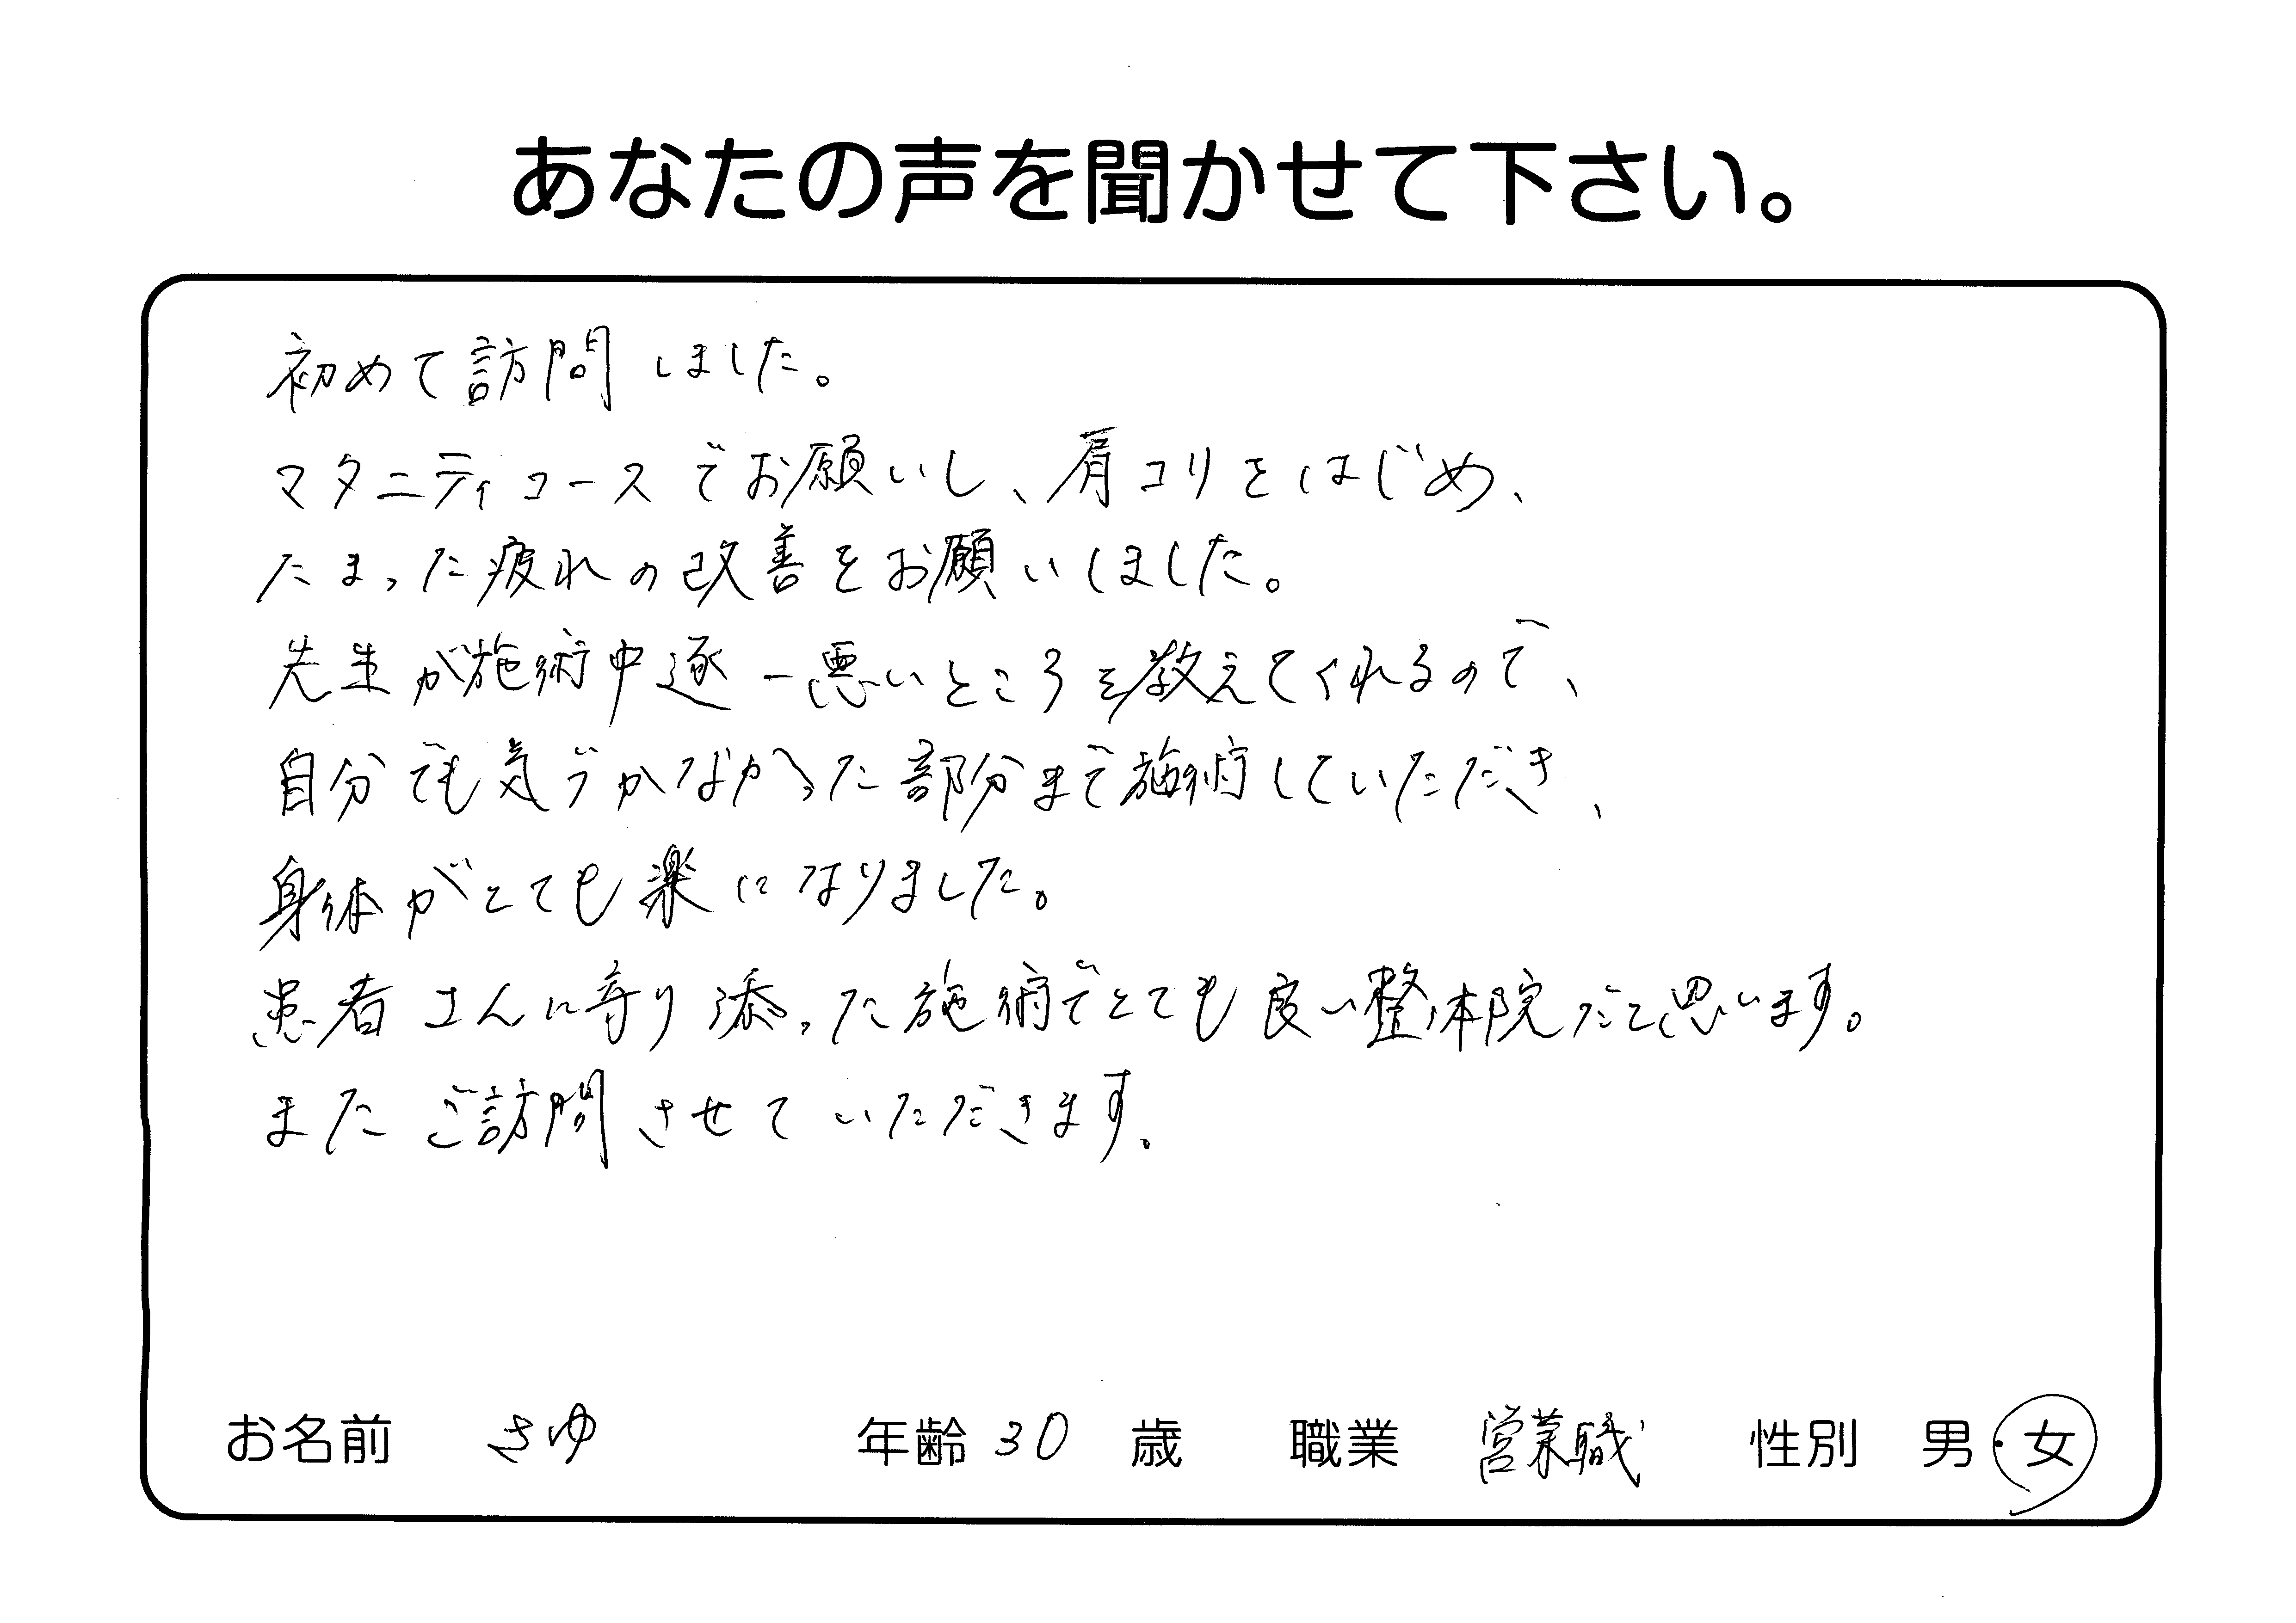 あなたの声を聞かせて下さい。
初めて訪問しました。
マタニティコースでお願いし、肩コリをはじめ、
たまった疲れの改善をお願いしました。
先生が施術中逐一悪いところを教えてくれるので、
自分でも気づかなかった部分まで施術していただき、
身体がとても楽になりました。
患者さんに寄り添った施術でとても良い整体院だと思います。
またご訪問させていただきます。
お名前 さゆ 年齢 30 歳 職業 営業職 性別 男・女